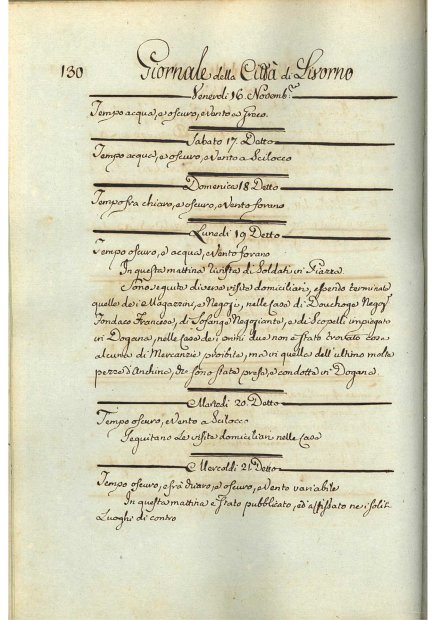 130 Giornale della Città di Livorno
Venerdi 16. Novemb.re
Tempo acqua, e oscuro, e Vento a Greco.
Sabato 17. Detto
Tempo acqua, e oscuro, e Vento a Scilocco
Domenica 18. Detto
Tempo fra chiaro, e oscuro, e Vento forano
Lunedi 19. Detto
Tempo oscuro, e acqua, e Vento forano
In questa mattina lista di Soldati in Piazza.
Sono seguite diverse visite domiciliari, essendo terminate
quelle dei Magazzini, e Negozj, nelle Casa di Douchoge Negoz.
Fondaco Francese, di Sofange Negoziante, e di Scopelli impiegato
in Dogana, nelle Case dei primi due non è stato trovato cosa
alcuna di Mercanzie proibite, ma in quella dell'ultimo molte
pezze d'Anchina, che sono state prese, e condotte in Dogana.
Martedi 20. Detto
Tempo oscuro, e Vento a Scilocco
Seguitano Le visite domiciliari nelle Case
Mercoldi 21. Detto
Tempo oscuro, e frà chiaro, e oscuro, e Vento variabile
In questa mattina è stato pubblicato, ed affissato ne i soliti
Luoghi di contro